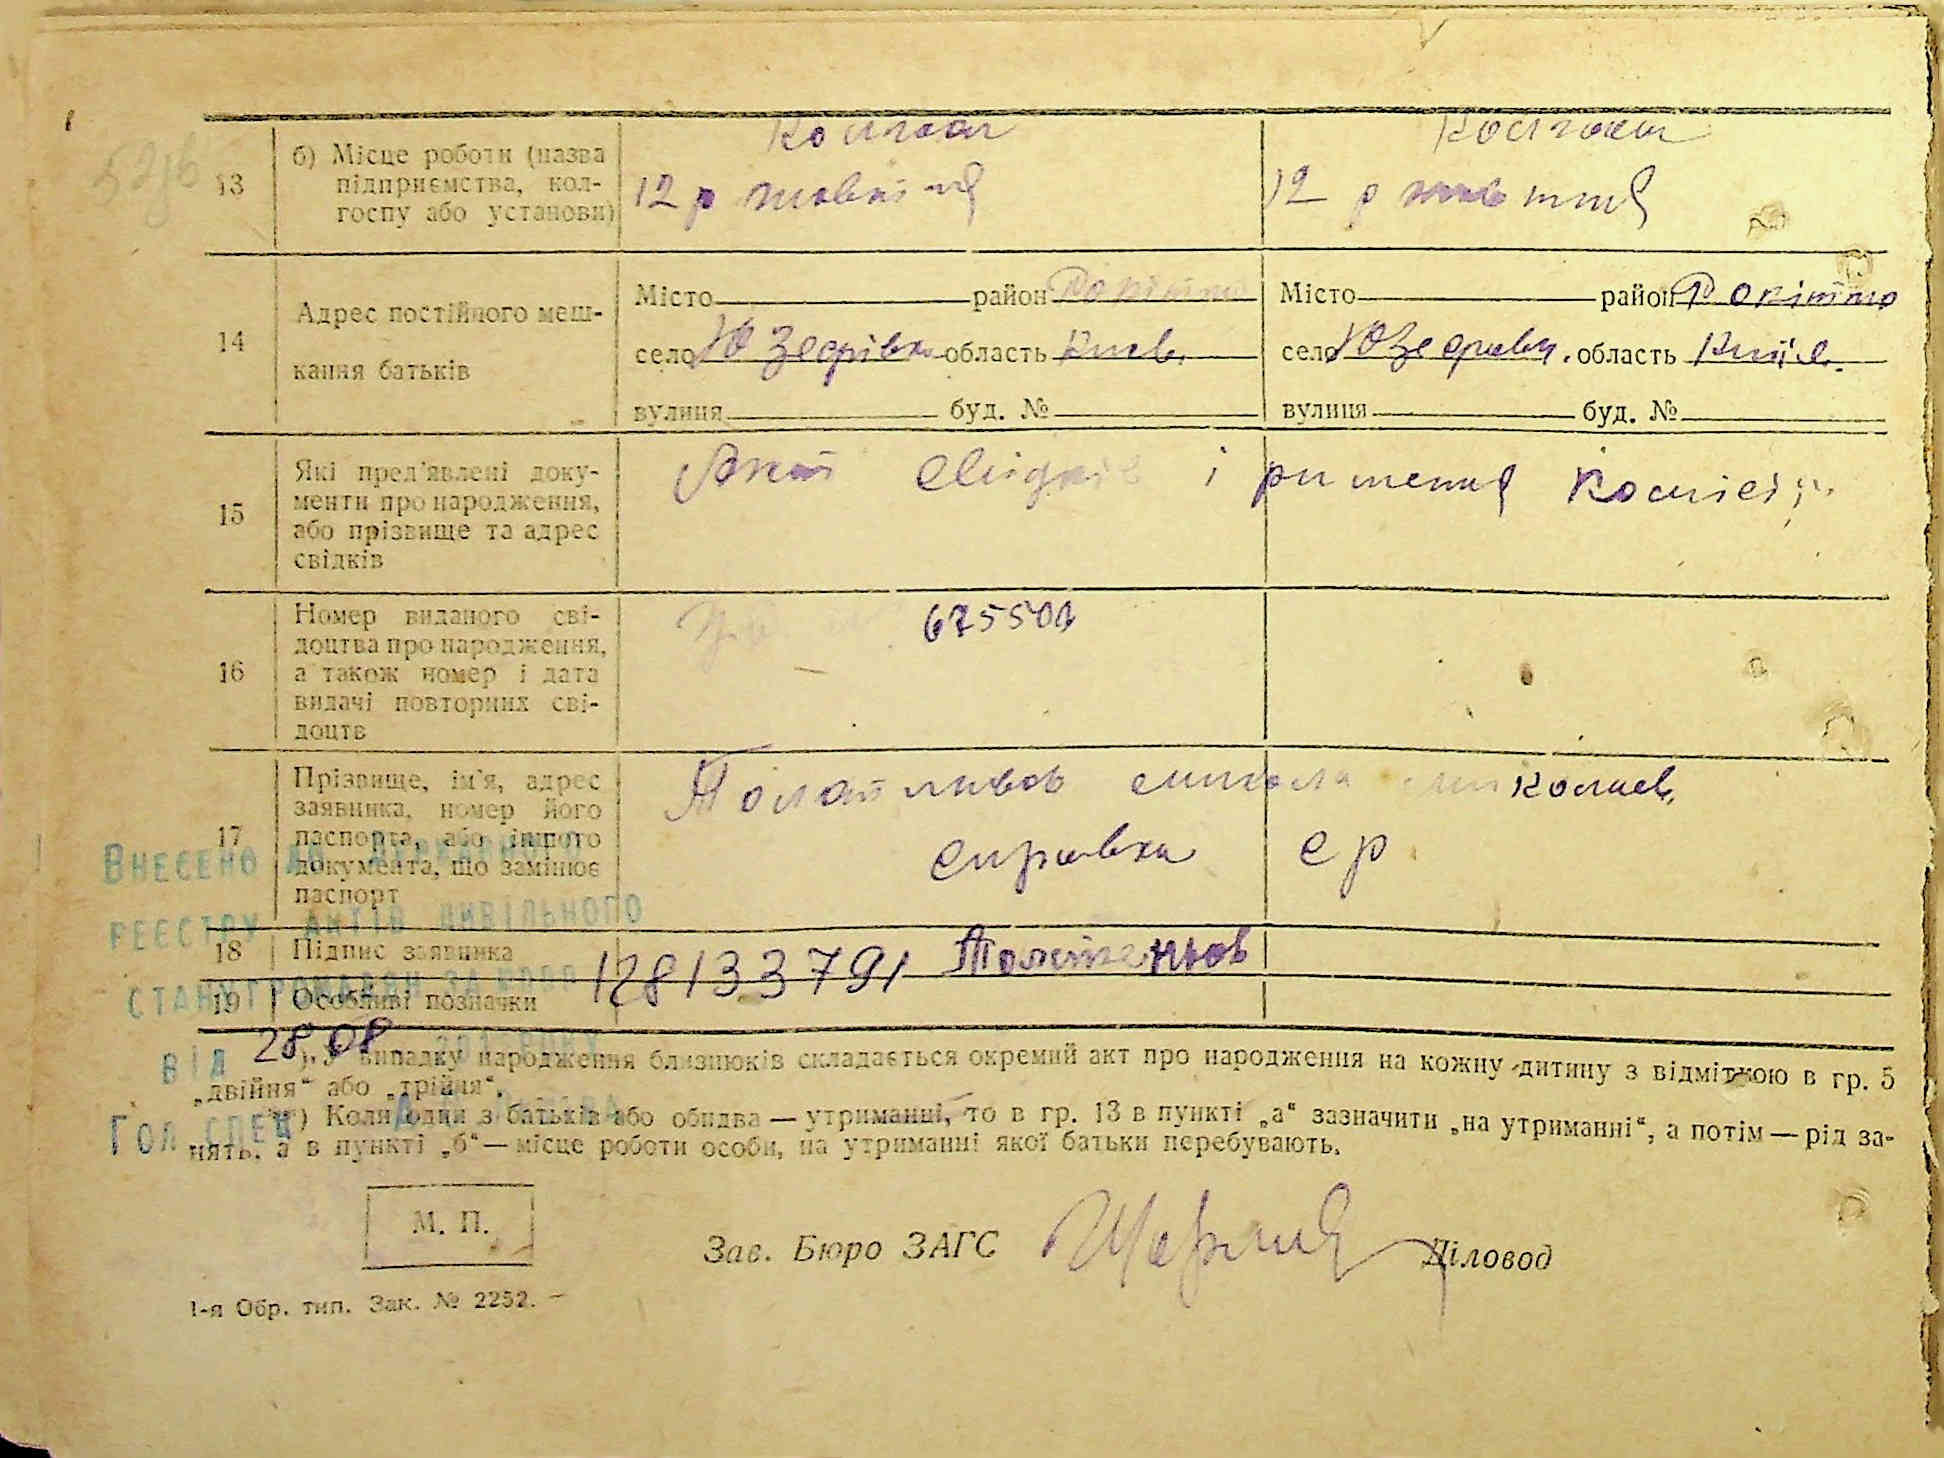 13
б) Місце роботи (назва
підприємства, кол-
госпу або установи)
Колгосп
12 р жовтня
Колгосп
12 р жовтня
14
Адрес постійного меш-
кання батьків
Місто район Рокитно
село Юзефівка область Київ.
вулиця буд. №
Місто район Рокитно
село Юзефівк. область Київ.
вулиця буд. №
15
Які пред'явлені доку-
менти про народження,
або прізвище та адрес
свідків
Акт свідків і рішення Комісії
16
Номер виданого сві-
доцтва про народження,
а також номер і дата
видачі повторних сві-
доцтв
675501
17
Прізвище, ім'я, адрес
заявника, номер його
паспорта, або іншого
документа, що замінює
паспорт
микола миколаєв.
справка ср
18
Підпис заявника
128133791
19
Особливі позначки
Внесено до Державного
реєстру актів цивільного
стану громадян за №
28 08
від
Гол спец
*) У випадку народження близнюків складається окремий акт про народження на кожну дитину з відміткою в гр. 5
„двійня“ або „трійня“.
**) Коли один з батьків або обидва — утриманні, то в гр. 13 в пункті „а“ зазначити „на утриманні“, а потім — рід за-
нять, а в пункті „б“ — місце роботи особи, на утриманні якої батьки перебувають.
М. П.
Зав. Бюро ЗАГС
Діловод
1-я Обр. тип. Зак. № 2252.